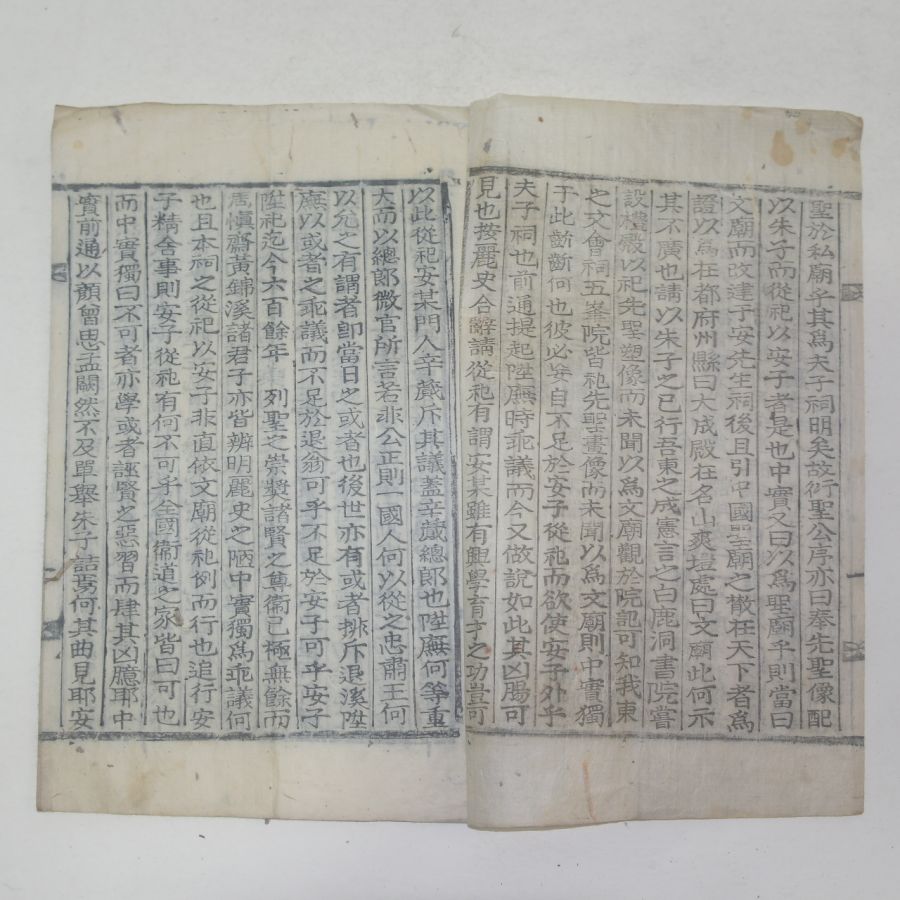 聖於私廟乎其爲夫子祠明矣故衍聖公序亦曰奉先聖像配
以朱子而從祀以安子者是也中實又曰以爲聖廟乎則當曰
文廟而改建于安先生祠後且引中國聖廟之散在天下者爲
證以爲在都府州縣曰大成殿在名山爽塏處曰文廟此何示
其不廣也請以朱子之已行吾東之成憲言之白鹿洞書院嘗
設禮殿以祀先聖塑像而未聞以爲文廟觀於院記可知我東
之文會祠五峯院皆祀先聖畫像而未聞以爲文廟則中實獨
于此齗齗何也彼必妄自不足於安子從祀而欲使安子外乎
夫子祠也前通提起陞廡時乖議而今又做說如此其凶膓可
見也按麗史合辭請從祀有謂安某雖有興學育才之功豈可
以此從祀安某門人辛蕆斥其議蓋辛蕆總郞也陞廡何等重
大而以總郞微官所言若非公正則一國人何以從之忠肅王何
以允之有謂者卽當日之或者也後世亦有或者排斥退溪陞
廡以或者之乖議而不足於退翁可乎不足於安子可乎安子
陞祀迄今六百餘年 列聖之崇奬諸賢之尊衞已極無餘而
周愼齋黃錦溪諸君子亦皆辨明麗史之陋中實獨爲乖議何
也且本祠之從祀以安子非直依文廟從祀例而行也追行安
子精舍事則安子從祀有何不可乎全國衞道之家皆曰可也
而中實獨曰不可者亦學或者誣賢之惡習而肆其凶臆耶中
實前通以顔曾思孟闕然不及單舉朱子詰焉何其曲見耶安